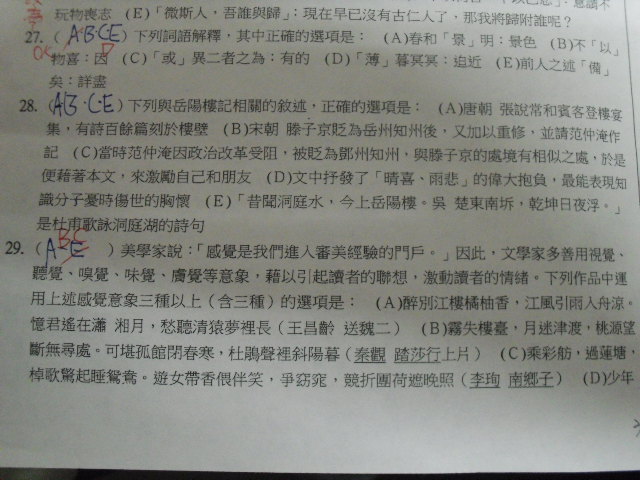 玩物喪志 (E)「微斯人，吾誰與歸」：現在早已沒有古仁人了，那我將歸附誰呢？
27. ( A·B·C·E ) 下列詞語解釋，其中正確的選項是： (A)春和「景」明：景色 (B)不「以」
物喜：因 (C)「或」異二者之為：有的 (D)「薄」暮冥冥：迫近 (E)前人之述「備」
矣：詳盡
28. ( AB·C·E ) 下列與岳陽樓記相關的敘述，正確的選項是： (A)唐朝 張說常和賓客登樓宴
集，有詩百餘篇刻於樓壁 (B)宋朝 滕子京貶為岳州知州後，又加以重修，並請范仲淹作
記 (C)當時范仲淹因政治改革受阻，被貶為鄧州知州，與滕子京的處境有相似之處，於是
便藉著本文，來激勵自己和朋友 (D)文中抒發了「晴喜、雨悲」的偉大抱負，最能表現知
識分子憂時傷世的胸懷 (E)「昔聞洞庭水，今上岳陽樓。吳 楚東南坼，乾坤日夜浮。」
是杜甫歌詠洞庭湖的詩句
29. ( A E BC ) 美學家說：「感覺是我們進入審美經驗的門戶。」因此，文學家多善用視覺、
聽覺、嗅覺、味覺、膚覺等意象，藉以引起讀者的聯想，激動讀者的情緒。下列作品中運
用上述感覺意象三種以上（含三種）的選項是： (A)醉別江樓橘柚香，江風引雨入舟涼。
憶君遙在瀟 湘月，愁聽清猿夢裡長（王昌齡 送魏二） (B)霧失樓臺，月迷津渡，桃源望
斷無尋處。可堪孤館閉春寒，杜鵑聲裡斜陽暮（秦觀 踏莎行上片） (C)乘彩舫，過蓮塘，
棹歌驚起睡鴛鴦。遊女帶香偎伴笑，爭窈窕，競折團荷遮晚照（李珣 南鄉子） (D)少年